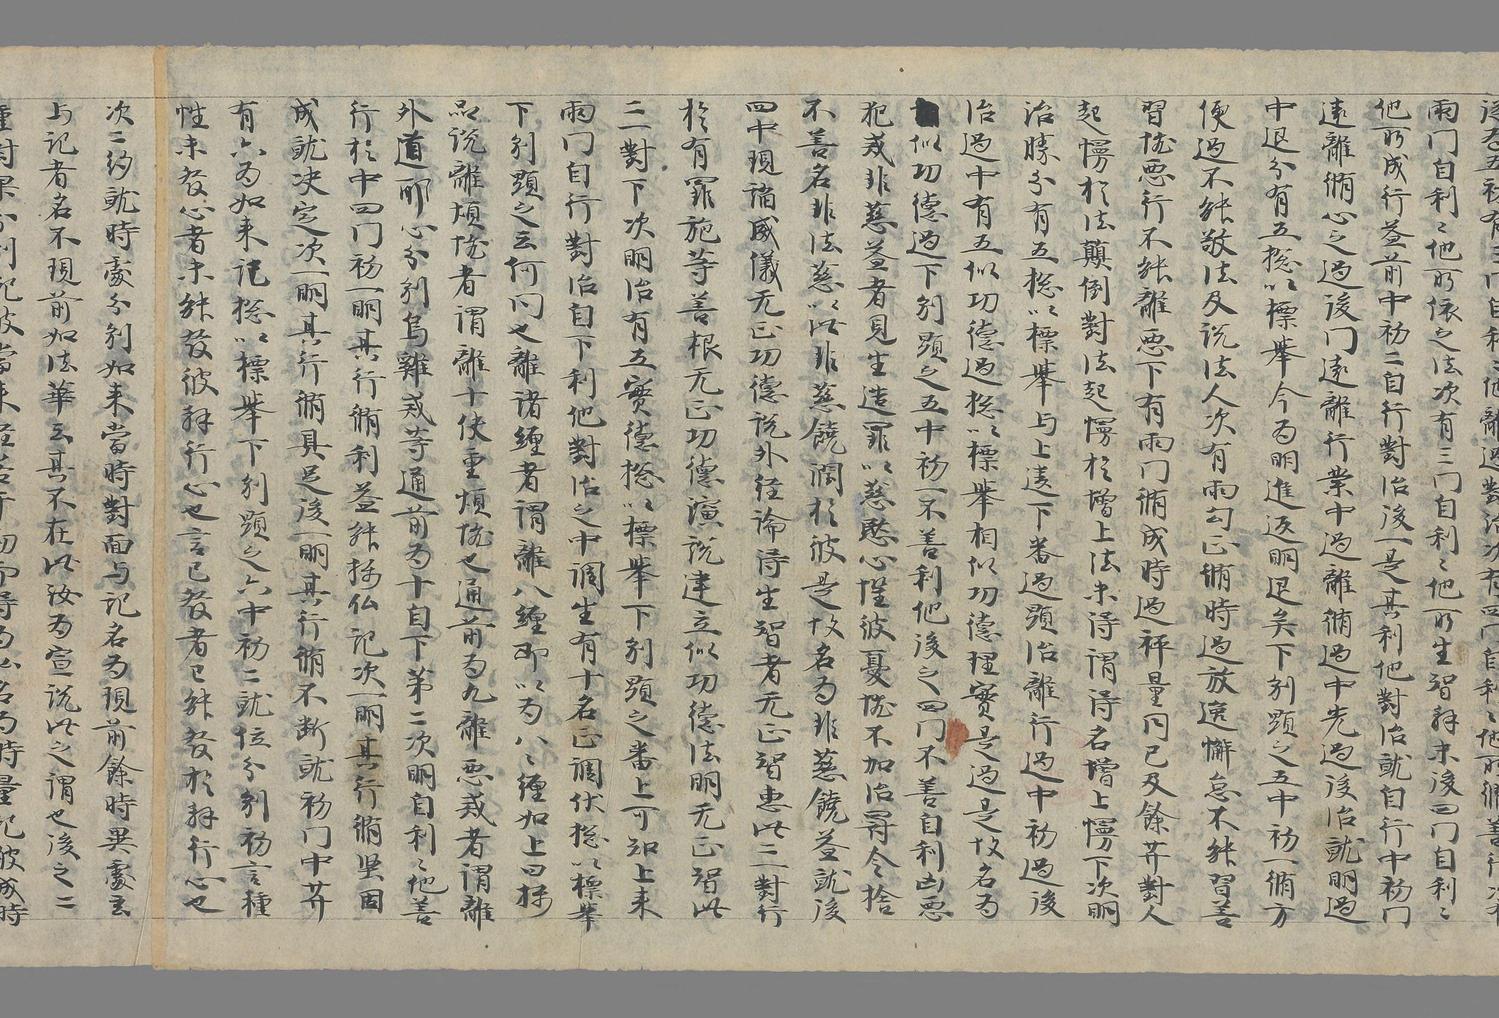 兩門自利利他所依之法次有三門自利利他所生智解末後四門自利利
他所成行益前中初二自行對治後一是其利他對治就自行中初門
遠離脩心之過後門遠離行業中過離脩過中先過後治就明過
中退分有五捴以標舉今為明進返明退矣下別顯之五中初一脩方
便過不能敬法及說法人次有兩句正脩時過放逸懈怠不能習善
習惱惡行不能離惡下有兩門脩成時過秤量同已及餘菩薩對人
起慢於法顛倒對法起慢於增上法未得謂得名增上慢下次明
治勝分有五捴以標舉与上違下番過顯治離行過中初過後
治過中有五似功德過捴以標舉相似功德理實是過是故名為
似功德過下別顯之五中初一不善利他後之四門不善自利凶惡
犯戒非慈益者見生造罪以慈愍心慬彼憂惱不加治罸令捨
不善名非法慈以此非慈饒潤於彼是故名為非慈饒益就後
四中現諂威儀无正功德說外經論得生智者无正智惠此二對行
於有罪施等善根无正功德演說建立似功德法明无正智此
二對下次明治有五實德捴以標舉下別顯之番上可知上来
兩門自行對治自下利他對治之中調生有十名正調伏捴以標舉
下別顯之云何問也離諸纏者謂離八纏即以為八八纏如上四択
品說離煩惱者謂離十伏重煩惱也通前為九離惡戒者謂離
外道耶心分別烏雞戒等通前為十自下第二次明自利利他善
行於中四門初一明其行脩利益能択仏記次一明其行脩堅固
成就决定次一明其行脩具足後一明其行脩不断就初門中菩薩
有六為如来記捴以標舉下別顯之六中初二就位分別初言種
性未發心者未能發彼解行心也言已發者已能發於解行心也
次二約就時處分別如来當時對面与記名為現前餘時異處玄
与記者名不現前如法華云其不在此汝為宣說此之謂也後之二